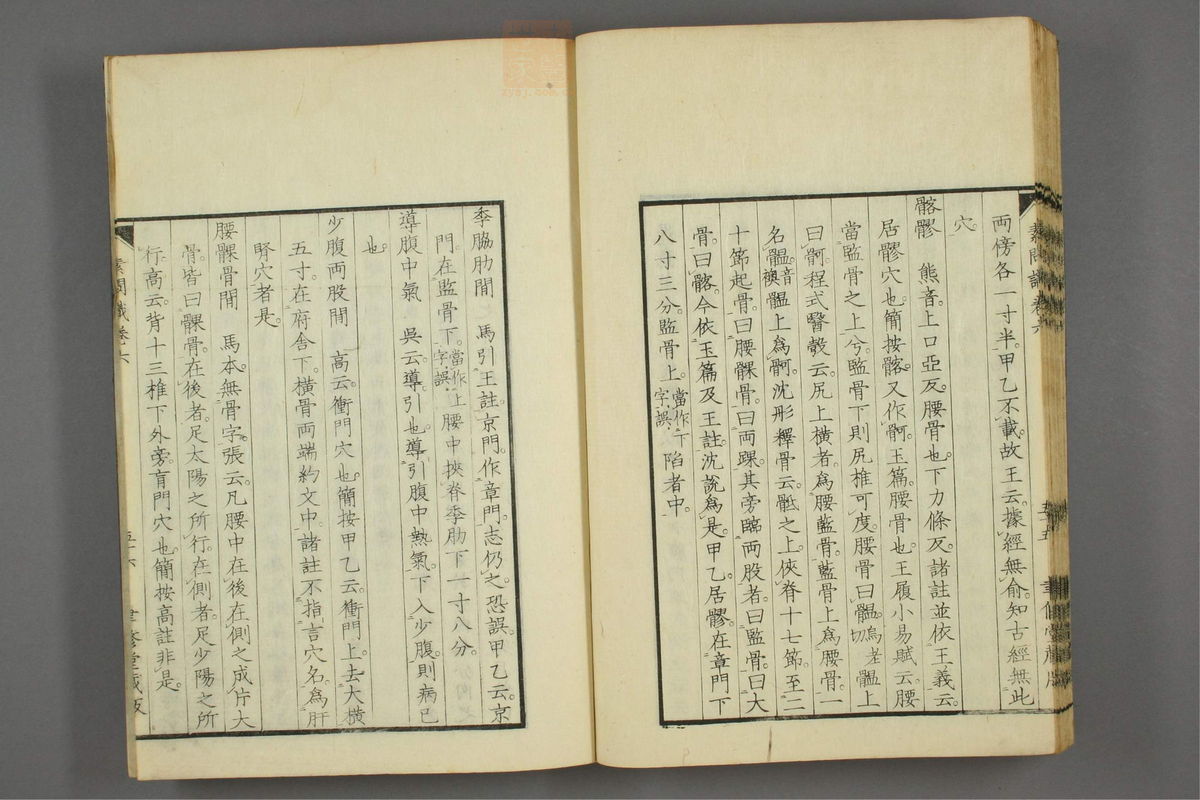 兩傍各一寸半。甲乙不載。故王云。據經無俞。知古經無此
穴。
髂髎 熊音。上口亞反。腰骨也。下力條反。諸註並依王義云。
居髎穴也。簡按髂。又作䯊。玉篇。腰骨也。王履小易賦云。腰
當監骨之上兮。監骨下則尻椎可度。腰骨曰䯠。烏老切䯠上
曰䯊。程式醫彀云。尻上橫者。爲腰監骨。監骨上爲腰骨。一
名䯠。音襖䯠上爲䯊。沈彤釋骨云。骶之上。俠脊十七節。至二
十節起骨。曰腰髁骨。曰兩踝。其旁臨兩股者。曰監骨。曰大
骨。曰髂。今依玉篇及王註。沈説爲是。甲乙。居髎。在章門下
八寸三分。監骨上。當作下字誤陷者中。
季脇肋間 馬引王註。京門。作章門。志仍之。恐誤。甲乙云。京
門。在監骨下。當作上字誤腰中挾脊季肋下一寸八分。
導腹中氣 吳云。導。引也。導引腹中熱氣。下入少腹。則病已
也。
少腹兩股間 高云。衝門穴也。簡按甲乙云。衝門。上去大橫
五寸。在府舍下。橫骨兩端約文中。諸註不指言穴名。爲肝
腎穴者。是。
腰髁骨間 馬本。無骨字。張云。凡腰中在後在側之成片大
骨。皆曰髁骨。在後者。足太陽之所行。在側者。足少陽之所
行。高云。背十三椎下外旁肓門穴也。簡按高註非是。
素問識卷六